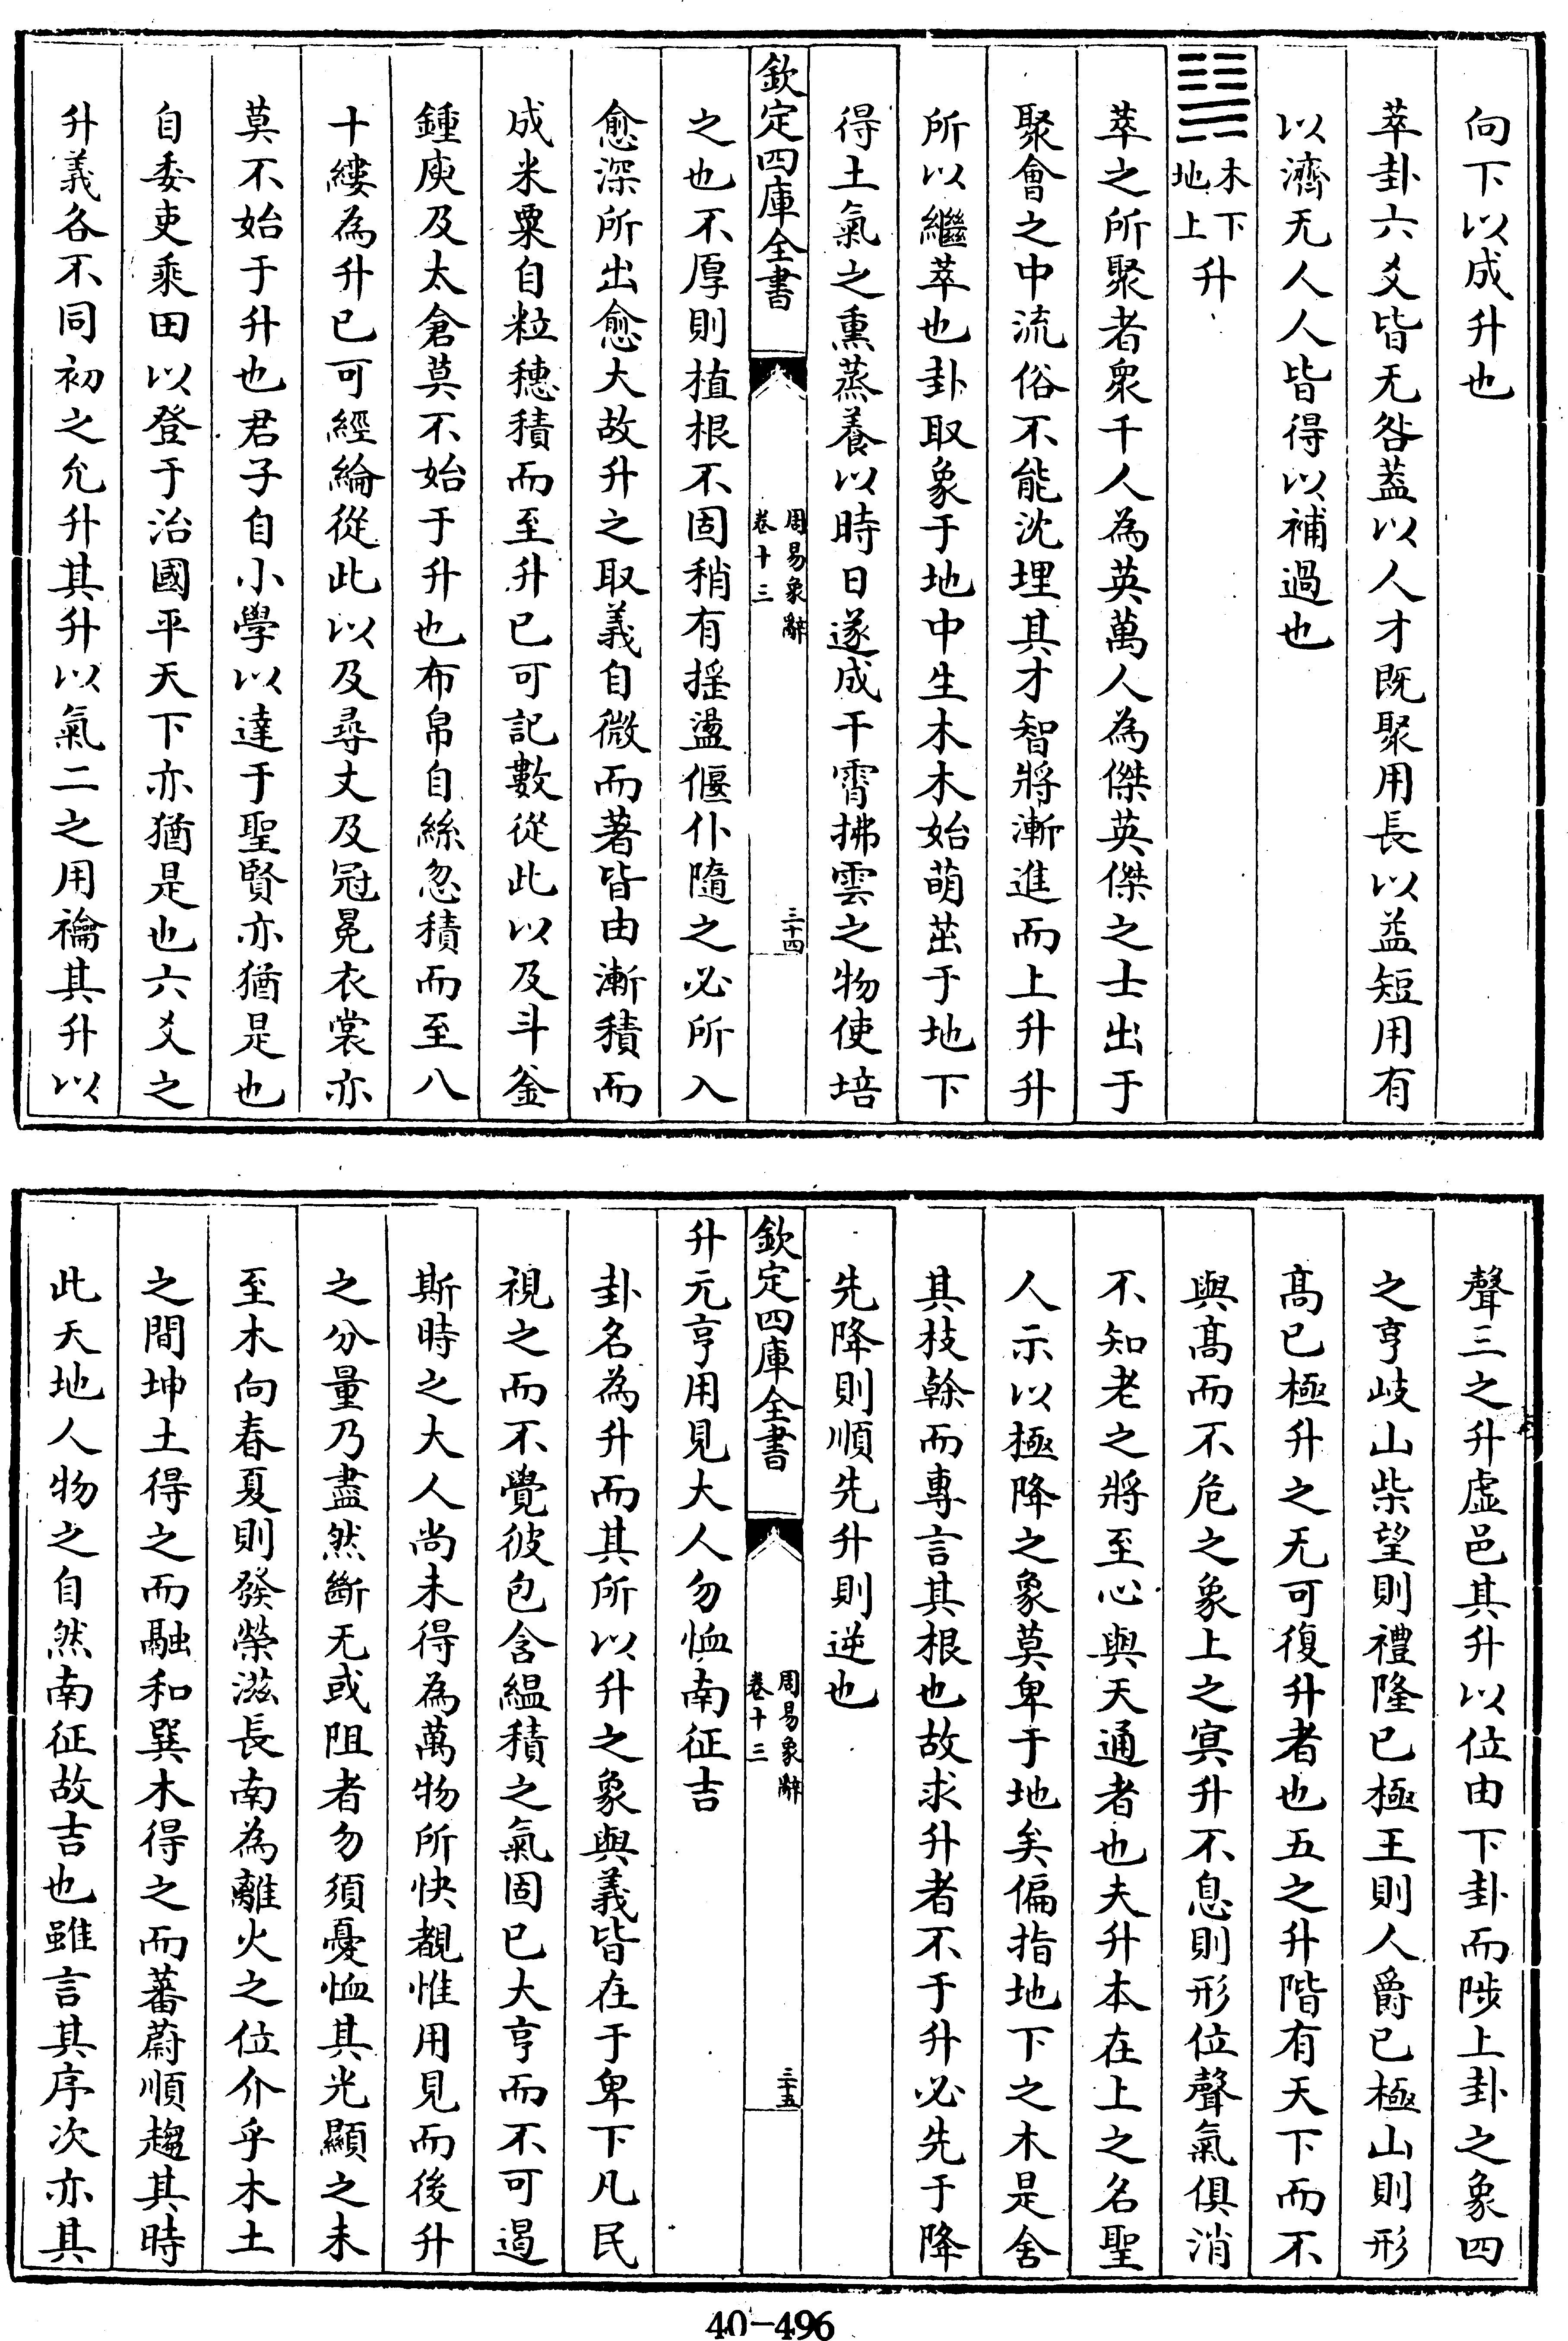 向下以成升也
萃卦六爻皆无咎蓋以人才既聚用長以益短用有
以濟无人人皆得以補過也
木下地上升
萃之所聚者衆千人為英萬人為傑英傑之士出于
聚會之中流俗不能沈埋其才智將漸進而上升升
所以繼萃也卦取象于地中生木木始萌茁于地下
得土氣之熏蒸養以時日遂成干霄拂雲之物使培
欽定四庫全書
周易象辭
卷十三
三十四
之也不厚則植根不固稍有搖盪偃仆隨之必所入
愈深所出愈大故升之取義自微而著皆由漸積而
成米粟自粒穗積而至升已可記數從此以及斗釜
鍾庾及太倉莫不始于升也布帛自絲忽積而至八
十縷為升已可經綸從此以及尋丈及冠冕衣裳亦
莫不始于升也君子自小學以達于聖賢亦猶是也
自委吏乘田以登于治國平天下亦猶是也六爻之
升義各不同初之允升其升以氣二之用禴其升以
聲三之升虛邑其升以位由下卦而陟上卦之象四
之亨岐山柴望則禮隆已極王則人爵已極山則形
髙已極升之无可復升者也五之升階有天下而不
與髙而不危之象上之㝠升不息則形位聲氣俱消
不知老之將至心與天通者也夫升本在上之名聖
人示以極降之象莫卑于地矣偏指地下之木是舍
其枝榦而專言其根也故求升者不于升必先于降
先降則順先升則逆也
欽定四庫全書
周易象辭
卷十三
三十五
升元亨用見大人勿恤南征吉
卦名為升而其所以升之象與義皆在于卑下凡民
視之而不覺彼包含緼積之氣固已大亨而不可遏
斯時之大人尚未得為萬物所快覩惟用見而後升
之分量乃盡然斷无或阻者勿須憂恤其光顯之未
至木向春夏則發榮滋長南為離火之位介乎木土
之間坤土得之而融和巽木得之而蕃蔚順趨其時
此天地人物之自然南征故吉也雖言其序次亦其
40-496